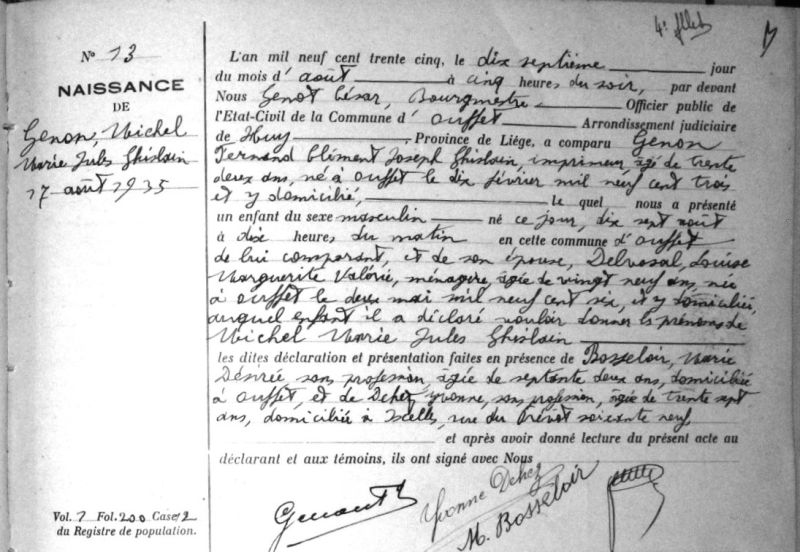 N° 13
NAISSANCE
DE
Genon, Michel
Marie Jules Ghislain
17 août 1935
L'an mil neuf cent trente cinq, le dix septième jour
du mois d' août à cinq heures du soir, par devant
Nous Genot César, Bourgmestre Officier public de
l'Etat-Civil de la Commune d' Ouffet Arrondissement judiciaire
de Huy, Province de Liége, a comparu Genon
Fernand Clément Joseph Ghislain imprimeur âgé de trente
deux ans, né à Ouffet le dix février mil neuf cent trois
et y domicilié, le quel nous a présenté
un enfant du sexe masculin né ce jour, dix sept août
à dix heures du matin en cette commune d'Ouffet
de lui comparant, et de son épouse, Delvosal, Louise
Marguerite Valérie, ménagère, âgée de vingt neuf ans, née
à Ouffet le deux mai mil neuf cent six, et y domiciliée,
auquel enfant il a déclaré vouloir donner les prénoms de
Michel Marie Jules Ghislain
les dites déclaration et présentation faites en présence de Bosseloir, Marie
Désirée sans profession, âgée de septante deux ans, domiciliée
à Ouffet, et de Dehez Yvonne, sans profession, âgée de trente sept
ans, domiciliée à Ixelles, rue du Prévôt soixante neuf
et après avoir donné lecture du présent acte au
déclarant et aux témoins, ils ont signé avec Nous
Yvonne Dehez
M. Bosseloir
Vol. 7 Fol. 200 Case 2
du Registre de population.